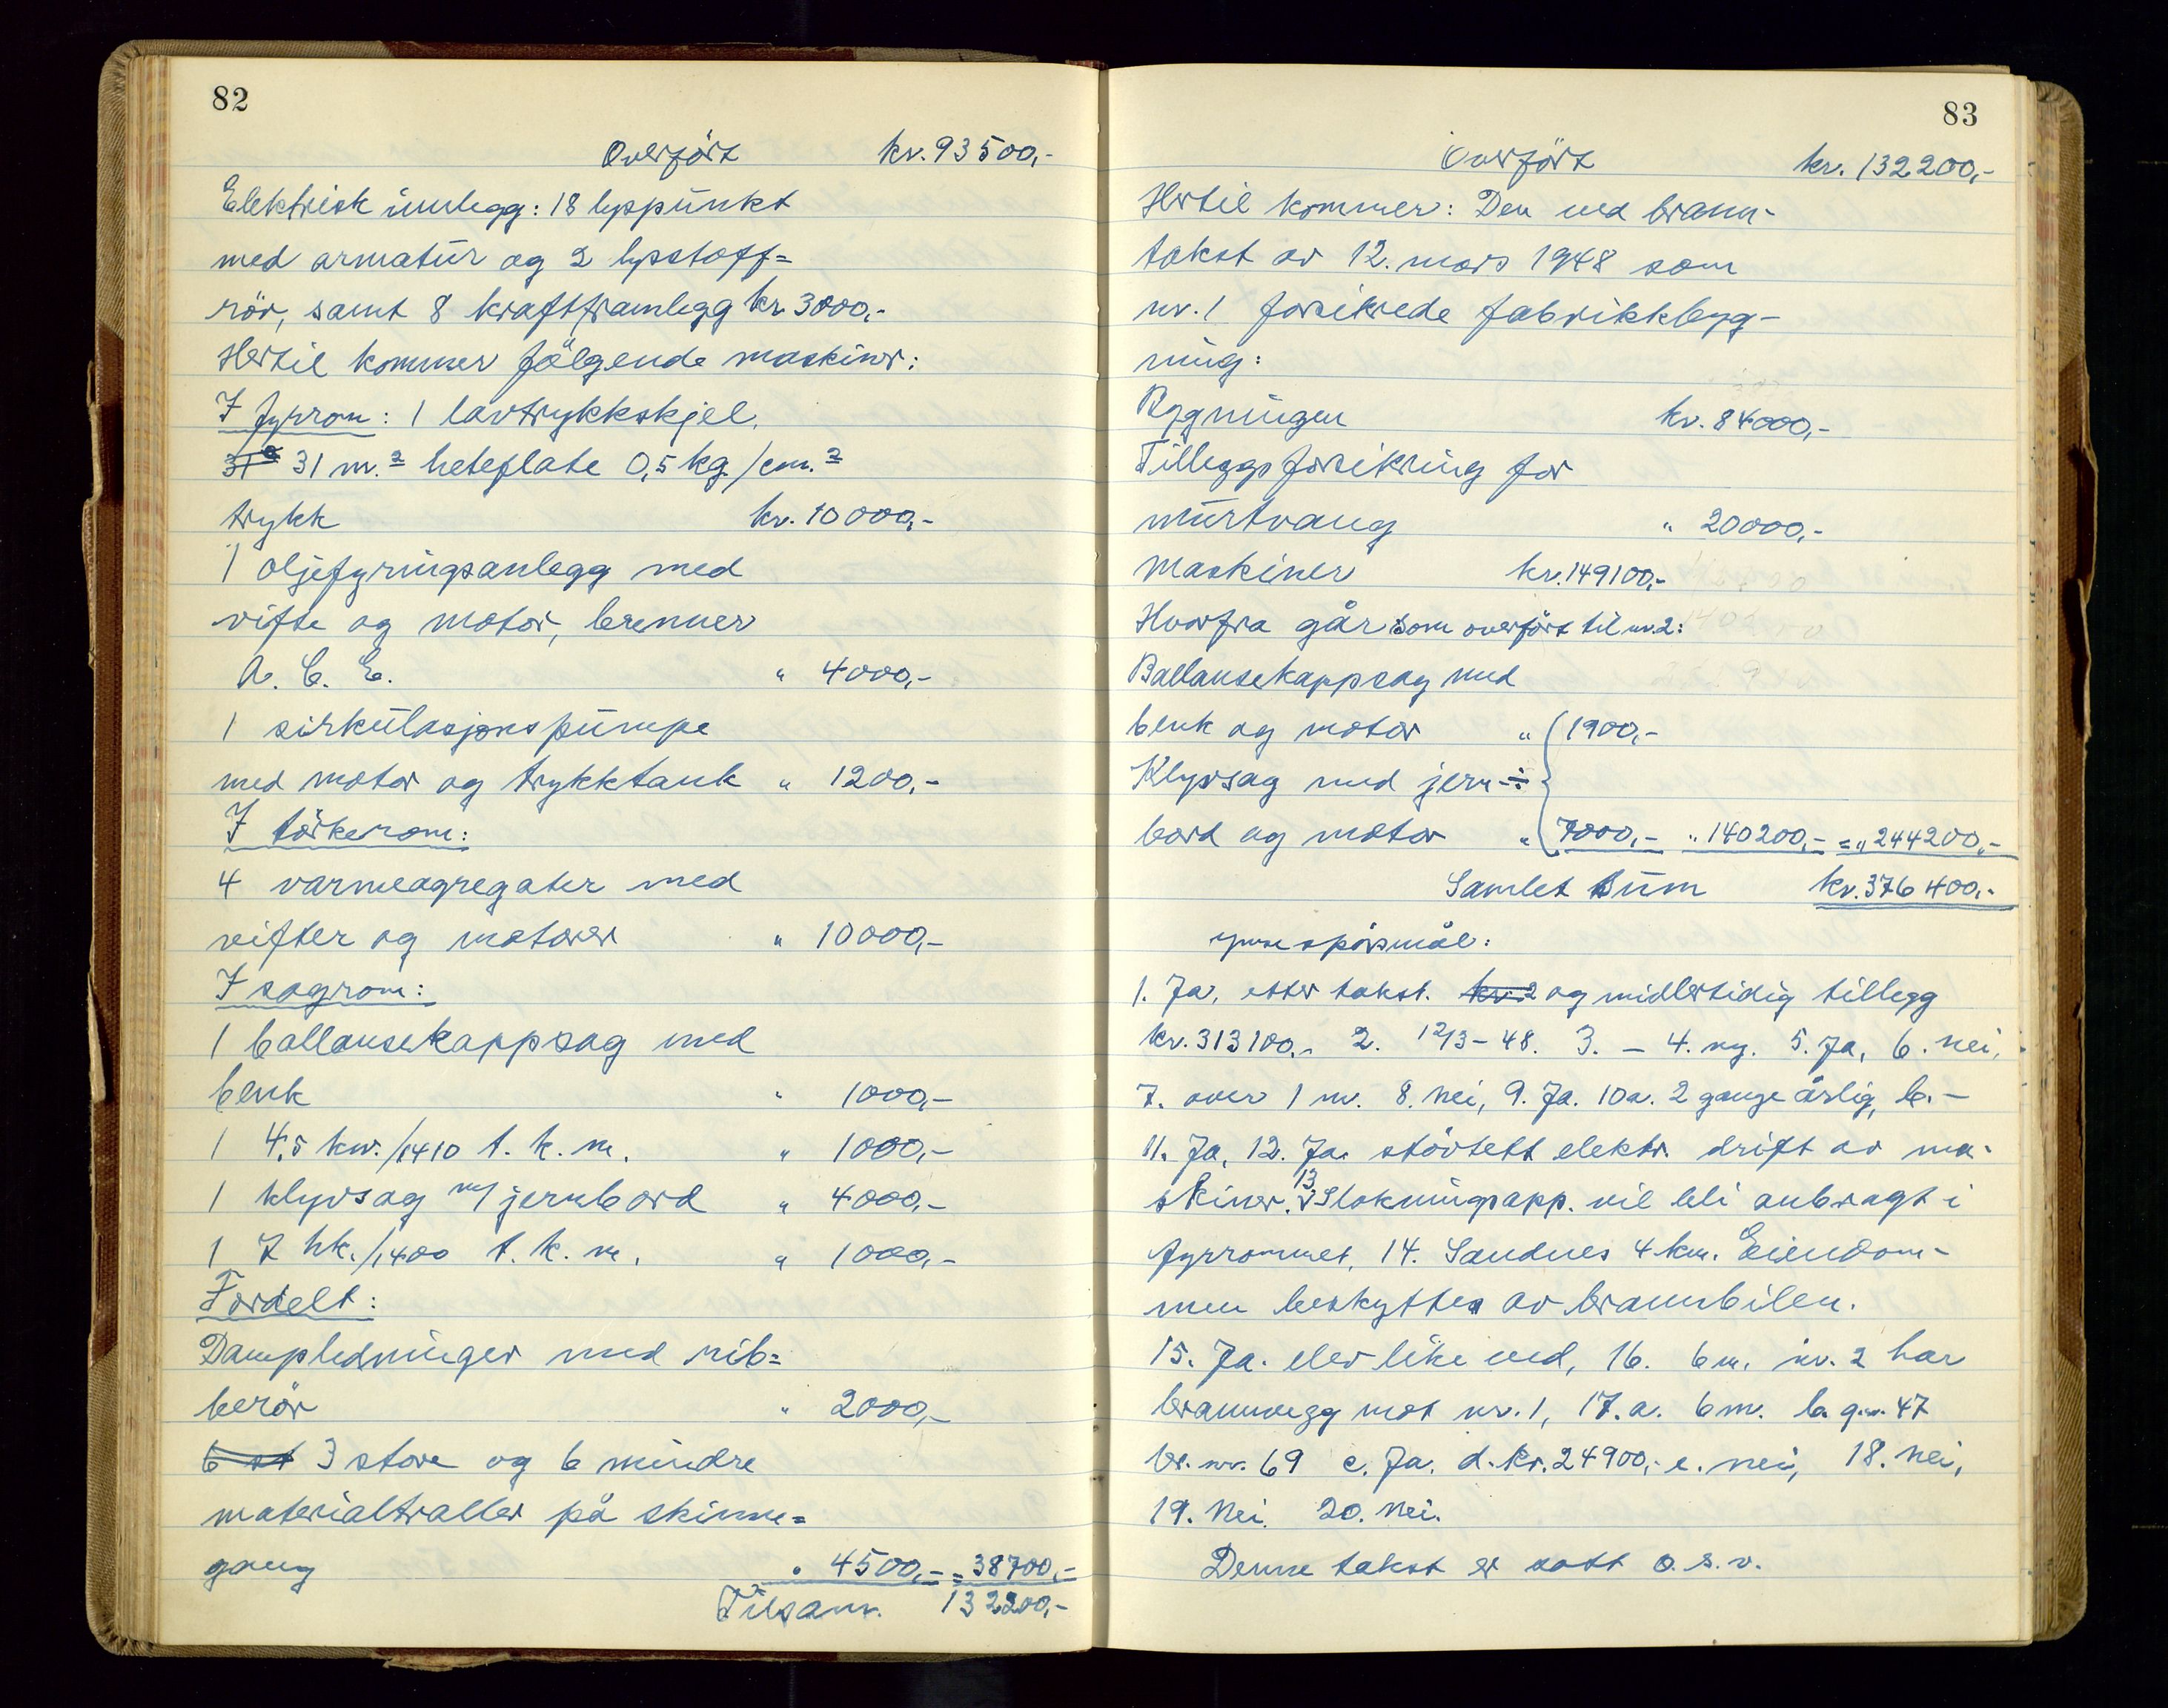 82
Overført kr. 93500,-
Elektrisk innlegg: 18 lyspunkt
med armatur og 2 lysstoff=
rör, samt 8 kraftframlegg kr. 3000,-
Hertil kommer følgende maskiner:
I fyrrom: 1 lavtrykkskjel,
31 31 m.² heteflate 0,5 kg/cm.²
trykk kr. 10000,-
1 oljefyringsanlegg med
vifte og motor, brenner
A. C. E. " 4000,-
1 sirkulasjonspumpe
med motor og trykktank " 1200,-
I törkerom:
4 varmeagregater med
vifter og motorer " 10000,-
I sagrom:
1 ballansekappsag med
benk " 1000,-
1 4,5 kw./1410 t. k. m. " 1000,-
1 klyvsag m/jernbord " 4000,-
1 7 hk./1400 t. k. m. " 1000,-
Fordelt:
Dampledninger med rib=
berör " 2000,-
6 st 3 store og 6 mindre
materialtraller på skinne=
gang " 4500,- = 38700,-
Tilsam. 132200,-
83
Overfört kr. 132200,-
Hertil kommer: Den ved brann-
takst av 12. mars 1948 som
nr. 1 forsikrede fabrikkbyg-
ning:
Bygningen kr. 84000,-
Tilleggsforsikring for
murtvang " 20000,-
Maskiner kr. 149100,-
Hvorfra går som overfört til nr. 2:
Ballansekappsag med
benk og motor " 1900,-
Klyvsag med jern- ÷
bord og motor " 7000,- " 140200,- = " 244200,-
Samlet sum kr. 376400,-
ymse spörsmål:
1. Ja, etter takst. kr. 2 og midlertidig tillegg
kr. 313100,- 2. 12/3-48. 3. – 4. ny. 5. Ja, 6. nei,
7. over 1 m. 8. nei, 9. Ja. 10a. 2 gange årlig, b. –
11. Ja, 12. Ja. stövtett elektr. drift av ma-
skiner. 13 Slokningsapp. vil bli anbragt i
fyrrommet, 14. Sandnes 4 km. Eiendom-
men beskyttes av brannbilen.
15. Ja. elev like ved, 16. 6 m. nr. 2 har
brannvegg mot nr. 1, 17. a. 6 m. b. g.nr. 47
br. nr. 69 c. Ja. d. kr. 24900,- e. nei, 18. nei,
19. Nei. 20. Nei.
Denne takst er satt o. s. v.